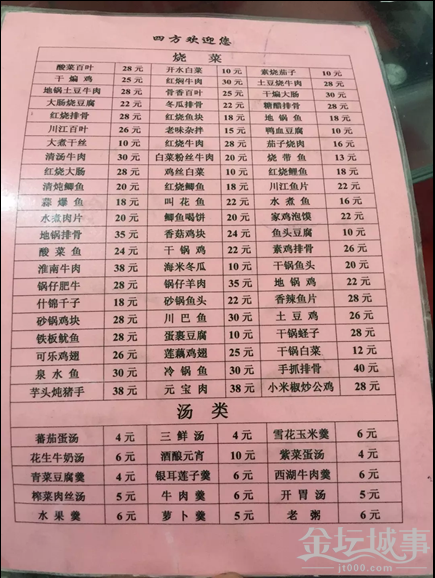 四方欢迎您
烧 菜
酸菜百叶 28 元 开水白菜 10 元 素烧茄子 10 元
干煸鸡 25 元 红焖牛肉 30 元 土豆烧牛肉 28 元
地锅土豆牛肉 28 元 骨香百叶 25 元 干煸大肠 30 元
大肠烧豆腐 22 元 冬瓜排骨 22 元 糖醋排骨 28 元
红烧排骨 28 元 红烧鱼块 18 元 地锅鱼 18 元
川江百叶 26 元 老味杂拌 15 元 鸭血豆腐 10 元
大煮干丝 10 元 红烧牛肉 28 元 茄子烧肉 16 元
清汤牛肉 30 元 白菜粉丝牛肉 20 元 烧带鱼 13 元
红烧大肠 30 元 鸡丝白菜 10 元 红烧鲤鱼 18 元
清炖鲫鱼 20 元 红烧鲫鱼 18 元 川江鱼片 22 元
蒜爆鱼 18 元 叫花鱼 22 元 水煮鱼 16 元
水煮肉片 20 元 鲫鱼喝饼 20 元 家鸡泡馍 22 元
地锅排骨 35 元 香菇鸡块 24 元 鱼头豆腐 10 元
酸菜鱼 24 元 干锅鸡 22 元 素鸡排骨 30 元
淮南牛肉 38 元 海米冬瓜 10 元 干锅鱼头 20 元
锅仔肥牛 28 元 锅仔羊肉 35 元 地锅鸡 22 元
什锦千子 18 元 砂锅鱼头 22 元 香辣鱼片 22 元
砂锅鸡块 28 元 川巴鱼 30 元 土豆鸡 30 元
铁板鱿鱼 28 元 蛋裹豆腐 10 元 干锅蛏子 28 元
可乐鸡翅 30 元 莲藕鸡翅 25 元 干锅白菜 12 元
泉水鱼 30 元 冷锅鱼 30 元 手抓排骨 40 元
芋头炖猪手 38 元 元宝肉 38 元 小米椒炒公鸡 28 元
汤 类
蕃茄蛋汤 4 元 三鲜汤 4 元 雪花玉米羹 6 元
花生牛奶汤 6 元 酒酿元宵 10 元 紫菜蛋汤 4 元
青菜豆腐羹 4 元 银耳莲子羹 6 元 西湖牛肉羹 6 元
榨菜肉丝汤 5 元 牛肉羹 6 元 开胃汤 5 元
水果羹 6 元 萝卜羹 5 元 老粥 6 元
金坛城事
jt000.com